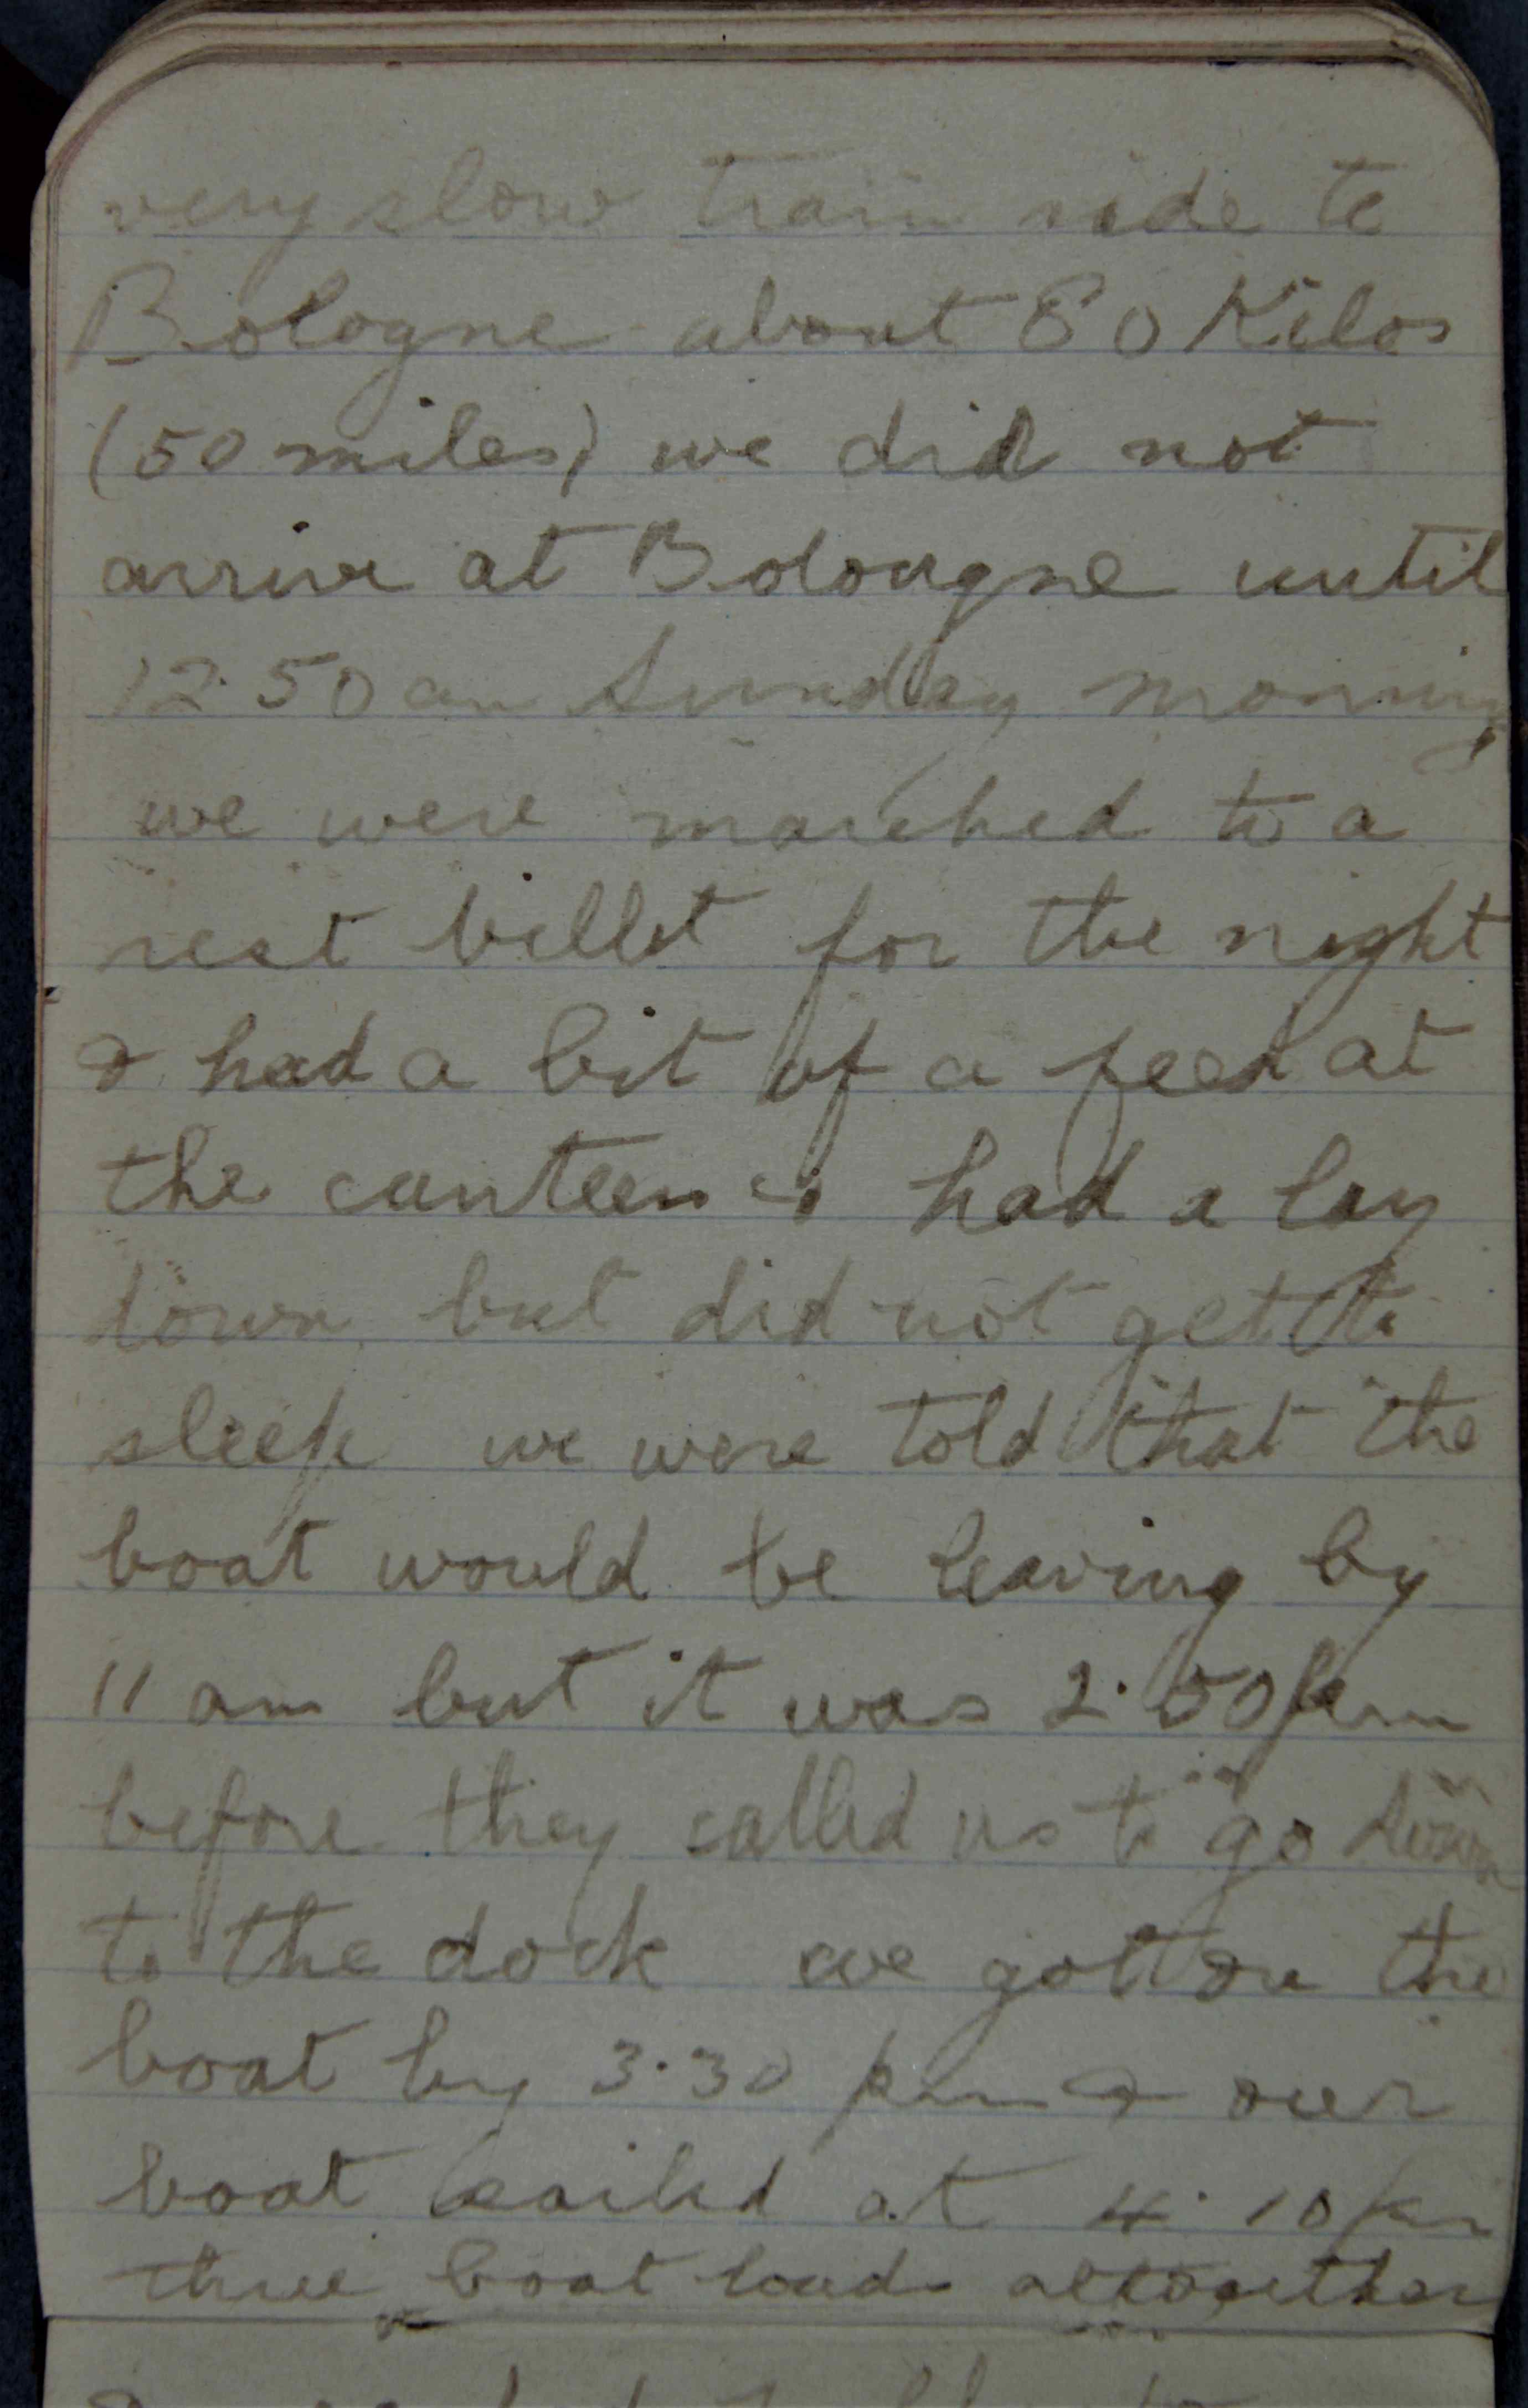 very slow train ride to
Bologne about 80 Kilos
(50 miles) we did not
arrive at Bolougne until
12.50 am Sunday morning
we were marched to a
rest billet for the night
& had a bit of a feed at
the canteen & had a lay
down but did not get to
sleep we were told that the
boat would be leaving by
11 am but it was 2.50 pm
before they called us to go down
to the dock we got on the
boat by 3.30 pm & our
boat sailed at 4.10 pm
three boat loads altogether